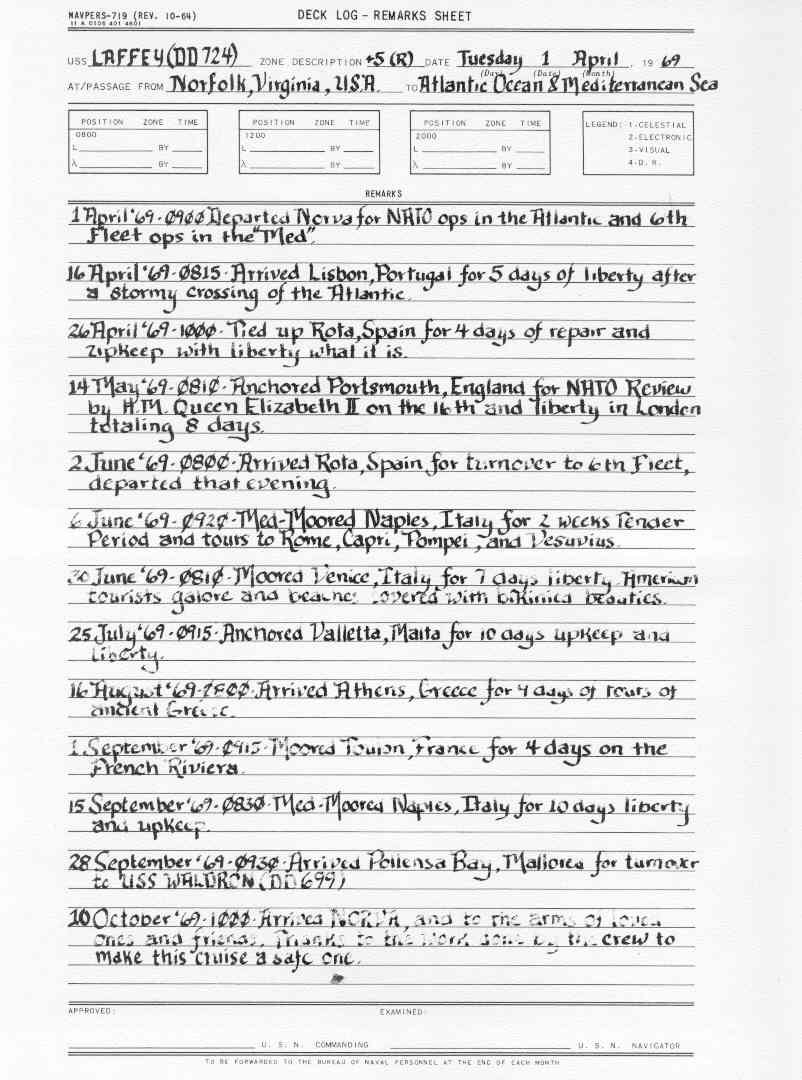 NAVPERS-719 (REV. 10-64)
DECK LOG - REMARKS SHEET
USS LAFFEY (DD 724) ZONE DESCRIPTION +5 (R) DATE Tuesday 1 April, 19 69
(Day) (Date) (Month)
AT/PASSAGE FROM Norfolk, Virginia, U.S.A. TO Atlantic Ocean & Mediterranean Sea
POSITION ZONE TIME
0800
L BY
λ BY
POSITION ZONE TIME
1200
L BY
λ BY
POSITION ZONE TIME
2000
L BY
λ BY
LEGEND: 1-CELESTIAL
2-ELECTRONIC
3-VISUAL
4-D. R.
REMARKS
1 April '69-0900 Departed Norva for NATO ops in the Atlantic and 6th
Fleet ops in the "Med".
16 April '69-0815-Arrived Lisbon, Portugal for 5 days of liberty after
a stormy crossing of the Atlantic.
26 April '69-1000-Tied up Rota, Spain for 4 days of repair and
upkeep with liberty what it is.
14 May '69-0810-Anchored Portsmouth, England for NATO Review
by H.M. Queen Elizabeth II on the 16th and liberty in London
totaling 8 days.
2 June '69-0800-Arrived Rota, Spain for turnover to 6th Fleet,
departed that evening.
6 June '69-0920-Med-Moored Naples, Italy for 2 weeks Tender
Period and tours to Rome, Capri, Pompei, and Vesuvius.
30 June '69-0810-Moored Venice, Italy for 7 days liberty. American
tourists galore and beaches covered with bikinied beauties.
25 July '69-0915-Anchored Valletta, Malta for 10 days upkeep and
liberty.
16 August '69-1800-Arrived Athens, Greece for 4 days of tours of
ancient Greece.
1 September '69-0915-Moored Toulon, France for 4 days on the
French Riviera.
15 September '69-0830-Med-Moored Naples, Italy for 10 days liberty
and upkeep.
28 September '69-0930-Arrived Pollensa Bay, Mallorca for turnover
to USS WALDRON (DD 699)
10 October '69-1000-Arrived NORVA, and to the arms of loved
ones and friends. Thanks to the work done by the crew to
make this cruise a safe one.
APPROVED:
EXAMINED:
U. S. N. COMMANDING
U. S. N. NAVIGATOR
TO BE FORWARDED TO THE BUREAU OF NAVAL PERSONNEL AT THE END OF EACH MONTH